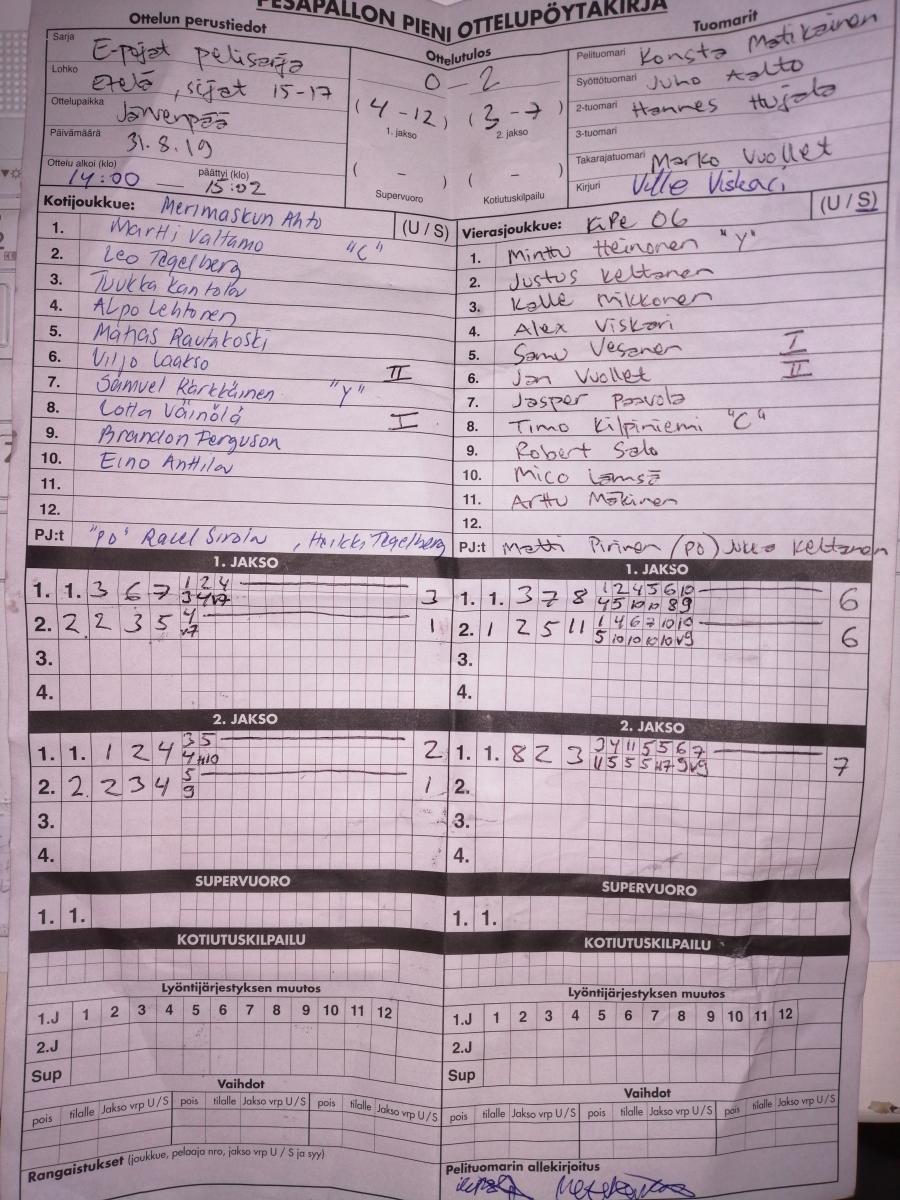 PESÄPALLON PIENI OTTELUPÖYTÄKIRJA
Ottelun perustiedot
Sarja E-pojat pelisarja
Lohko Etelä, sijat 15-17
Ottelupaikka Järvenpää
Päivämäärä 31.8.19
Ottelu alkoi (klo) päättyi (klo)
14:00 — 15:02
Ottelutulos
0-2
(4-12) (3-7)
1. jakso 2. jakso
( - ) ( - )
Supervuoro Kotiutuskilpailu
Tuomarit
Pelituomari Konsta Matikainen
Syöttötuomari Juho Aalto
2-tuomari Hannes Hujala
3-tuomari
Takarajatuomari Marko Vuollet
Kirjuri Ville Viskari
Kotijoukkue: Merimaskun Ahto (U / S)
1. Martti Valtamo "C"
2. Leo Tegelberg
3. Tuukka Kantola
4. Alpo Lehtonen
5. Matias Rautakoski
6. Viljo Laakso II
7. Samuel Kärkkäinen "Y"
8. Lotta Väinölä I
9. Brandon Ferguson
10. Eino Anttila
11.
12.
PJ:t "PO" Rauli Sirola, Heikki Tegelberg
Vierasjoukkue: KiPe 06 (U / S)
1. Minttu Heinonen "Y"
2. Justus Keltanen
3. Kalle Mikkonen
4. Alex Viskari
5. Samu Vesanen I
6. Jan Vuollet II
7. Jasper Paavola
8. Timo Kilpiniemi "C"
9. Robert Salo
10. Mico Lamsä
11. Arttu Mäkinen
12.
PJ:t Matti Pirinen (PO) Jukka Keltanen
1. JAKSO
1. 1. 3 6 7 1 2 4 3
2. 2 2 3 5 4 1
3.
4.
1. JAKSO
1. 1. 3 7 8 1 2 4 5 6 10 6
4 5 10 10 8 9
2. 1 2 5 11 1 4 6 7 10 10 6
5 10 10 10 10 v9
3.
4.
2. JAKSO
1. 1. 1 2 4 3 5 2
2. 2. 2 3 4 5 1
9
3.
4.
2. JAKSO
1. 1. 8 2 3 3 4 11 5 5 6 7 7
2.
3.
4.
SUPERVUORO
1. 1.
SUPERVUORO
1. 1.
KOTIUTUSKILPAILU
KOTIUTUSKILPAILU
Lyöntijärjestyksen muutos
1.J 1 2 3 4 5 6 7 8 9 10 11 12
2.J
Sup
Lyöntijärjestyksen muutos
1.J 1 2 3 4 5 6 7 8 9 10 11 12
2.J
Sup
Vaihdot
pois tilalle Jakso vrp U/S pois tilalle Jakso vrp U/S pois tilalle Jakso vrp U/S
Vaihdot
pois tilalle Jakso vrp U/S pois tilalle Jakso vrp U/S pois tilalle Jakso vrp U/S
Rangaistukset (joukkue, pelaaja nro, jakso vrp U / S ja syy)
Pelituomarin allekirjoitus